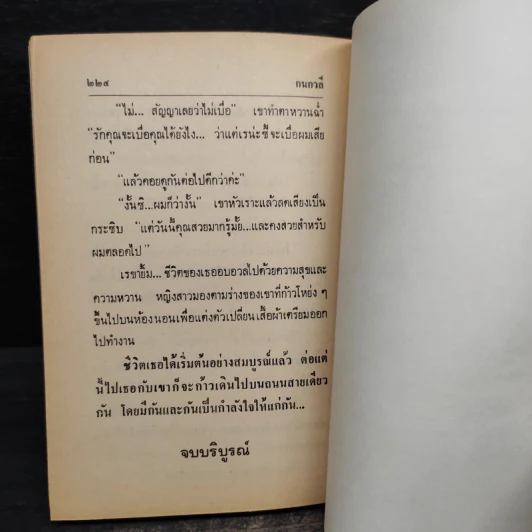 ๒๒๔ กนกวลี
"ไม่... สัญญาเลยว่าไม่เบื่อ" เขาทำตาหวานฉ่ำ
"รักคุณจะเบื่อคุณได้ยังไง... ว่าแต่เรน่ะซี้จะเบื่อผมเสีย
ก่อน"
"แล้วคอยดูกันต่อไปดีกว่าค่ะ"
"งั้นซิ...ผมก็ว่างั้น" เขาหัวเราะแล้วลดเสียงเป็น
กระซิบ "แต่วันนี้คุณสวยมากรู้มั้ย...และคงสวยสำหรับ
ผมตลอดไป"
เรขายิ้ม... ชีวิตของเธออบอวลไปด้วยความสุขและ
ความหวาน หญิงสาวมองตามร่างของเขาที่ก้าวโหย่ง ๆ
ขึ้นไปบนห้องนอนเพื่อแต่งตัวเปลี่ยนเสื้อผ้าเตรียมออก
ไปทำงาน
ชีวิตเธอได้เริ่มต้นอย่างสมบูรณ์แล้ว ต่อแต่
นี้ไปเธอกับเขาก็จะก้าวเดินไปบนถนนสายเดียว
กัน โดยมีกันและกันเป็นกำลังใจให้แก่กัน...
จบบริบูรณ์